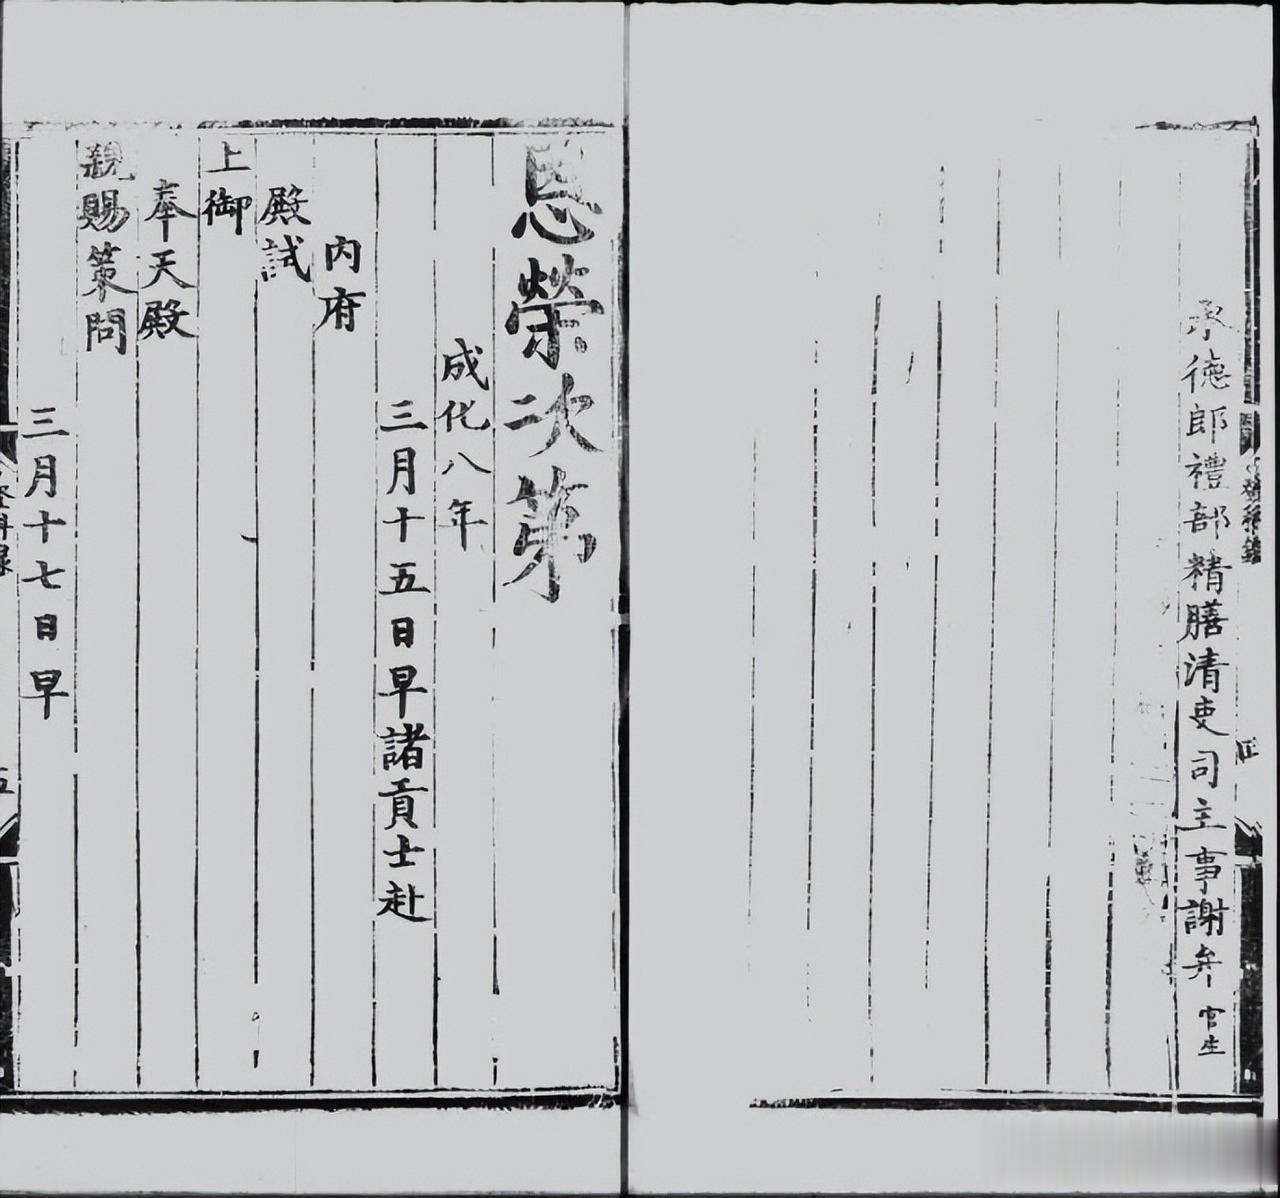 承德郎禮部精膳清吏司主事謝弁官生
恩榮次第
成化八年
三月十五日早諸貢士赴
內府
殿試
上御
奉天殿
親賜策問
三月十七日早
登科錄
五